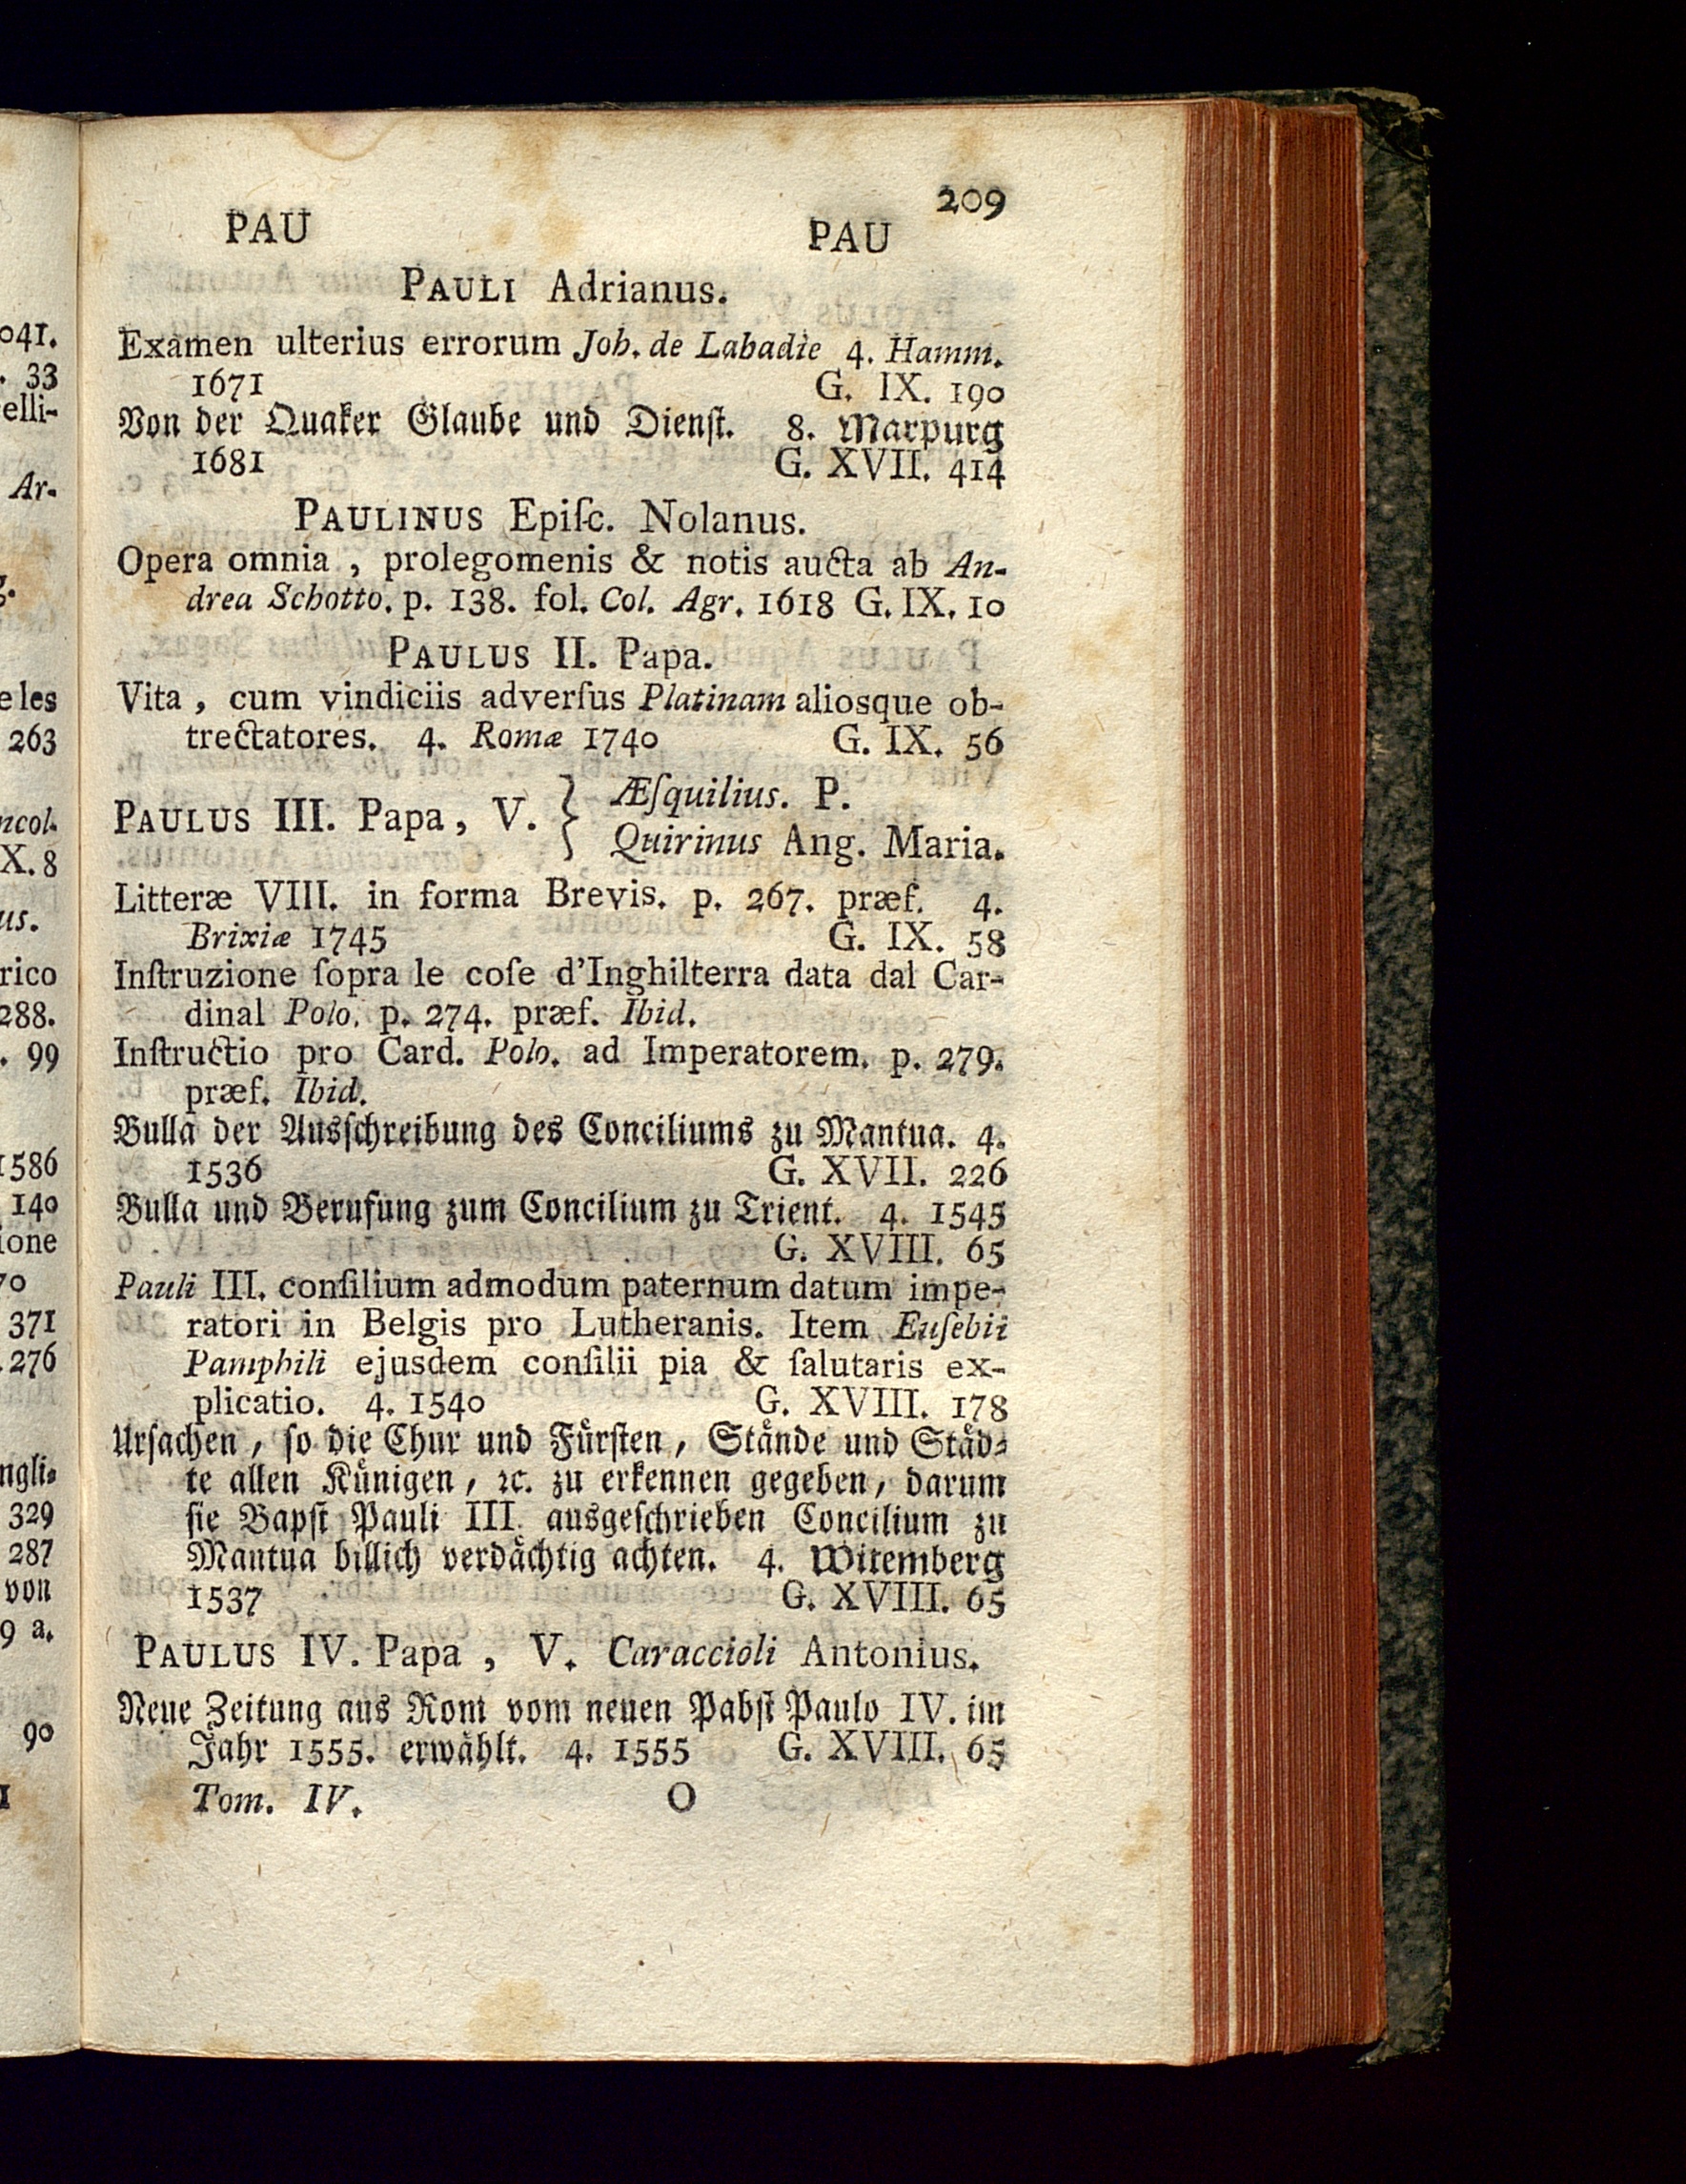 209
PAU PAU
PAULI Adrianus.
Examen ulterius errorum Joh. de Labadie 4. Hamm.
1671 G. IX. 190
Von der Quaker Glaube und Dienſt. 8. Marpurg
1681 G. XVII. 414
PAULINUS Epiſc. Nolanus.
Opera omnia , prolegomenis & notis aucta ab An-
drea Schotto. p. 138. fol. Col. Agr. 1618 G. IX. 10
PAULUS II. Papa.
Vita , cum vindiciis adverſus Platinam aliosque ob-
trectatores. 4. Romæ 1740 G. IX. 56
PAULUS III. Papa , V. } Æſquilius. P.
Quirinus Ang. Maria.
Litteræ VIII. in forma Brevis. p. 267. præf. 4.
Brixiæ 1745 G. IX. 58
Inſtruzione ſopra le coſe d'Inghilterra data dal Car-
dinal Polo. p. 274. præf. Ibid.
Inſtructio pro Card. Polo. ad Imperatorem. p. 279.
præf. Ibid.
Bulla der Ausſchreibung des Conciliums zu Mantua. 4.
1536 G. XVII. 226
Bulla und Berufung zum Concilium zu Trient. 4. 1545
G. XVIII. 65
Pauli III. conſilium admodum paternum datum impe-
ratori in Belgis pro Lutheranis. Item Euſebii
Pamphili ejusdem conſilii pia & ſalutaris ex-
plicatio. 4. 1540 G. XVIII. 178
Urſachen , ſo die Chur und Fürſten , Stände und Städ-
te allen Künigen , ꝛc. zu erkennen gegeben , darum
ſie Bapſt Pauli III. ausgeſchrieben Concilium zu
Mantua billich verdächtig achten. 4. Witemberg
1537 G. XVIII. 65
PAULUS IV. Papa , V. Caraccioli Antonius.
Neue Zeitung aus Rom vom neuen Pabſt Paulo IV. im
Jahr 1555. erwählt. 4. 1555 G. XVIII. 65
Tom. IV. O
041.
. 33
elli-
Ar-
g.
eles
263
ncol.
X. 8
us.
rico
288.
. 99
1586
140
ione
70
371
.276
ngli-
329
287
von
9 a.
90